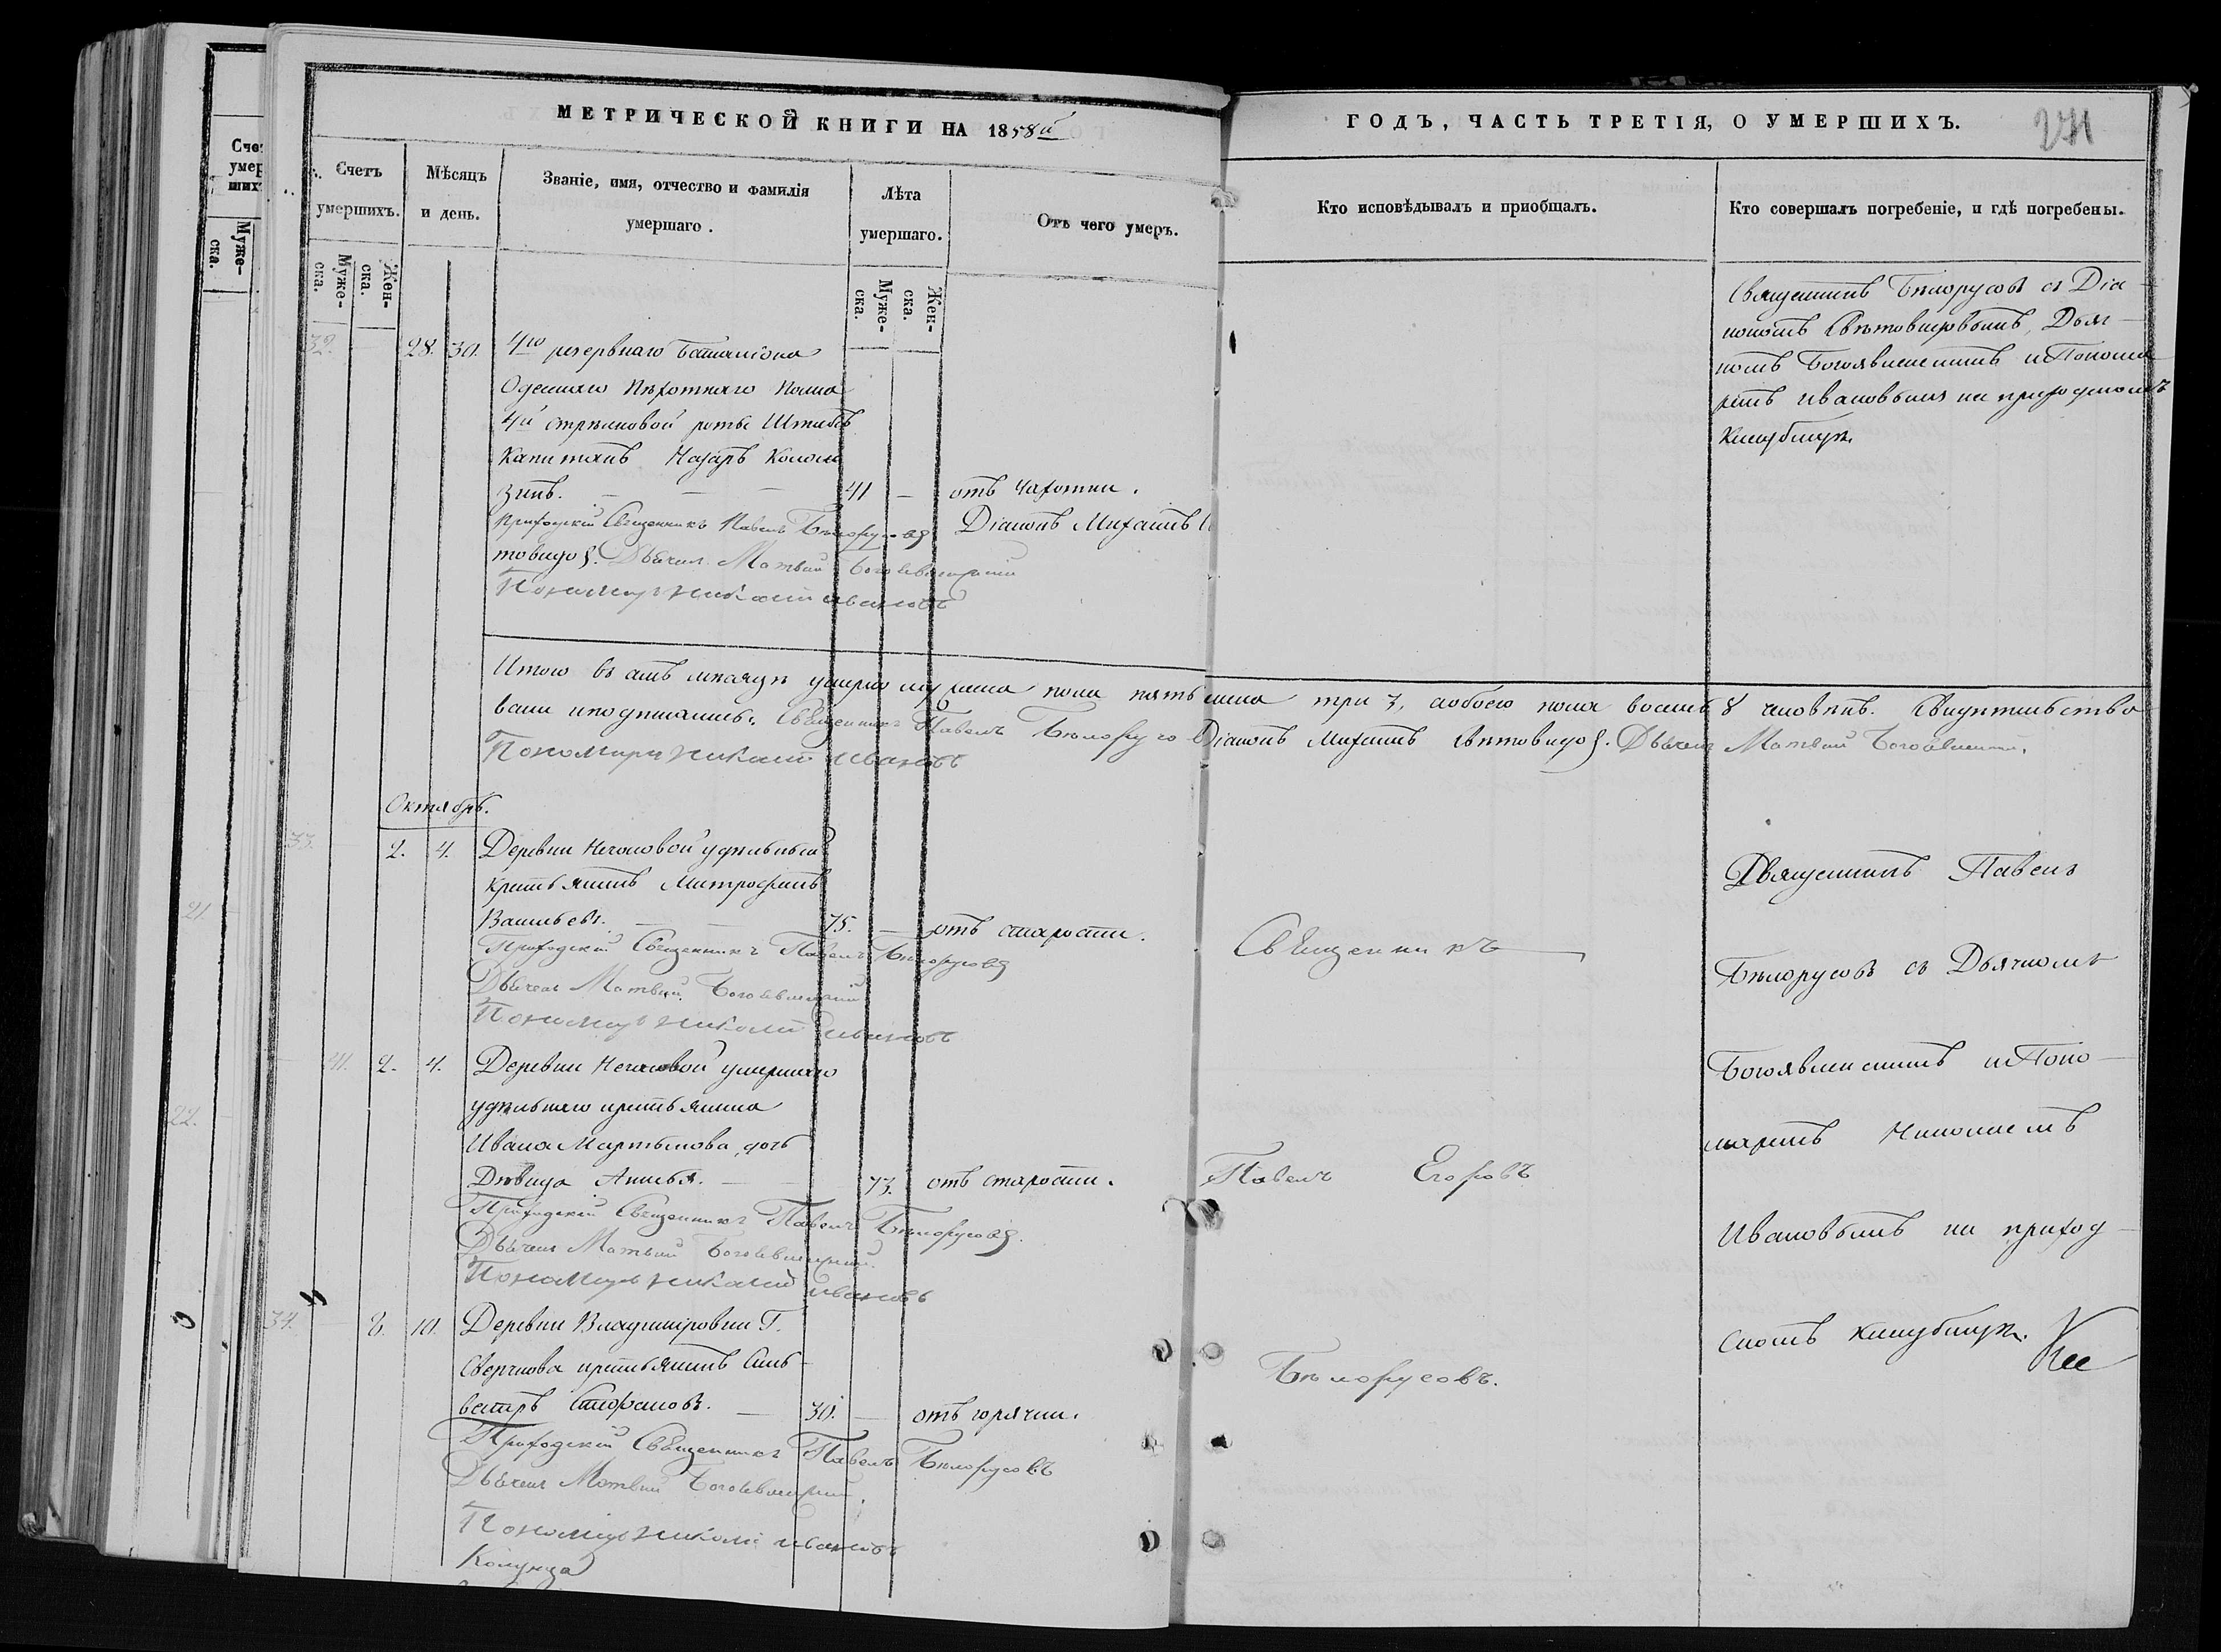 МЕТРИЧЕСКОЙ КНИГИ НА 1858й
ГОДЪ, ЧАСТЬ ТРЕТІЯ, О УМЕРШИХЪ.
271
Счетъ умершихъ.
Муже-ска.
Жен-ска.
Мѣсяцъ и день.
Званіе, имя, отчество и фамилія умершаго.
Лѣта умершаго.
Муже-ска.
Жен-ска.
Отъ чего умеръ.
Кто исповѣдывалъ и приобщалъ.
Кто совершалъ погребеніе, и гдѣ погребены.
32. — 28. 30. 4го резервнаго баталіона
Одескаго Пѣхотнаго Полка
4й стрѣлковой роты Штабсъ
Капитанъ Назаръ Колома
зинъ. — — — 41 — отъ чахотки.
Приходскій Священникъ Павелъ Бѣлорусовъ Діаконъ Михаилъ
товидов. Дьячекъ Матвѣй Богоявленскій
Пономарь Николай Ивановъ
Священникъ Бѣлорусовъ съ Діа-
кономъ Свѣтовидовымъ, Дьяч-
комъ Богоявленскимъ и Понома
ремъ Ивановымъ на приходскомъ
кладбищѣ.
Итого въ семъ мѣсяцѣ умерло мужеска пола пять женска три 3, обоего пола восемь 8 человѣкъ. Свидѣтельство
вали и подписались: Священникъ Павелъ Бѣлорусо Діаконъ Михаилъ Свѣтовидов. Дьячекъ Матвѣй Богоявленскій.
Пономарь Николай Ивановъ
Октябрь.
33. — 2. 4. Деревни Нечаловой удѣльный
крестьянинъ Митрофанъ
Васильевъ. — — 75. — отъ старости.
Приходскій Священникъ Павелъ Бѣлорусовъ
Дьячекъ Матвѣй Богоявленскій
Пономарь Николай Ивановъ
— 41. 2. 4. Деревни Нечаловой умершаго
удѣльнаго крестьянина
Ивана Мартынова, дочь
Дѣвица Анисья. — — 73. отъ старости.
Приходскій Священникъ Павелъ Бѣлорусовъ.
Дьячекъ Матвѣй Богоявленскій.
Пономарь Николай Ивановъ
34. — 8. 10. Деревни Владимировки Г.
Сверчкова крестьянинъ Силь-
вестръ Стефановъ. — 30. — отъ горячки.
Приходскій Священникъ Павелъ Бѣлорусовъ
Дьячекъ Матвѣй Богоявленскій.
Пономарь Николай Ивановъ
Священникъ
Павелъ Егоровъ
Бѣлорусовъ.
Священникъ Павелъ
Бѣлорусовъ съ Дьячкомъ
Богоявленскимъ и Поно-
маремъ Николаемъ
Ивановымъ на приход-
скомъ кладбищѣ.
Счет
умер
ших
Муже-ска.
21.
22.